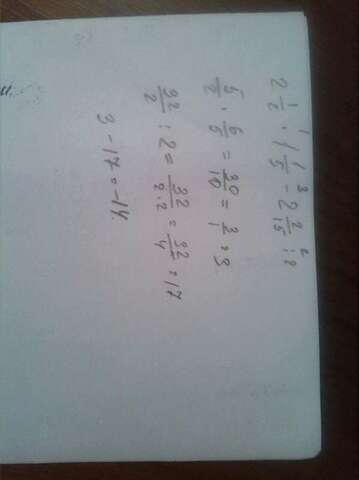 2 1/2 · 1 1/5 - 2 2/15 : 2
5/2 · 6/5 = 30/10 = 3/1 = 3
32/2 : 2 = 32/2·2 = 32/4 = 17
3 - 17 = -14.